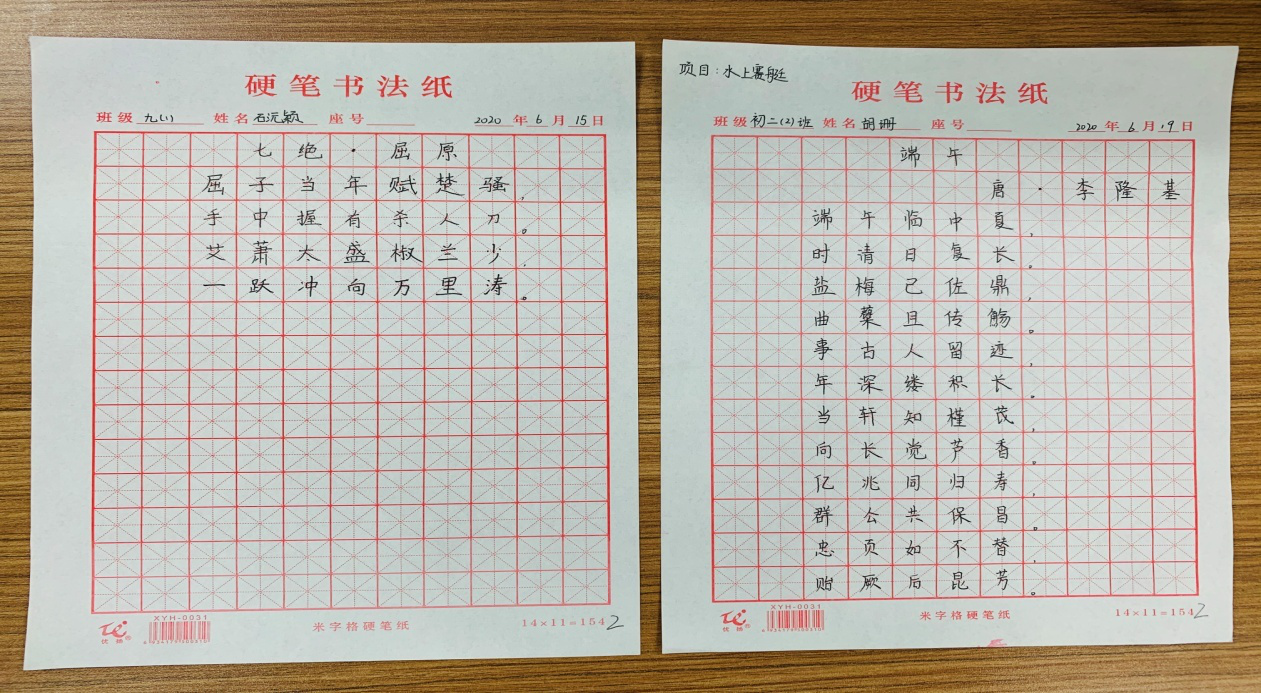 硬笔书法纸
班级 九(1) 姓名 石沅颖 座号 2020 年 6 月 15 日
七绝·屈原
屈子当年赋楚骚,
手中握有杀人刀。
艾萧太盛椒兰少,
一跃冲向万里涛。
优格
XYH-0031
米字格硬笔纸
14×11=154
2
项目:水上赛艇
硬笔书法纸
班级 初二(2)班 姓名 胡珊 座号 2020 年 6 月 19 日
端午
唐·李隆基
端午临中夏,
时请日复长。
盐梅已佐鼎,
曲蘖且传觞。
事古人留迹,
年深缕积长。
当轩知槿茂,
向长觉芦香。
亿兆同归寿,
群公共保昌。
忠页如不替,
贻厥后昆芳。
优格
XYH-0031
米字格硬笔纸
14×11=154
2